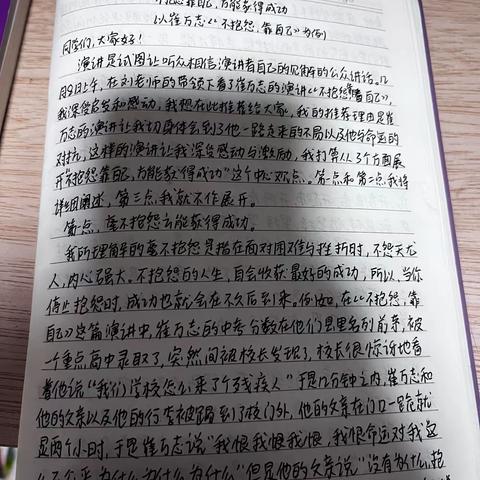 不抱怨靠自己,方能获得成功
以崔万志《不抱怨,靠自己》为例
同学们,大家好!
演讲是试图让听众相信演讲者自己的见解的公众讲话。12
月9日上午,在刘老师的带领下看了崔万志的演讲《不抱怨靠自己》,
我深受启发和感动,我想在此推荐给大家,我的推荐理由是崔
万志的演讲让我切身体会到了他一路走来的不易以及他与命运的
对抗,这样的演讲让我深受感动与激励,我打算从3个方面展
开"不抱怨靠自己,方能获得成功"这个中心观点。第一点和第二点我将
详细阐述,第三点我就不作展开。
第一点,毫不抱怨方能获得成功。
我所理解的毫不抱怨是指在面对困难与挫折时,不怨天尤
人,内心强大。不抱怨的人生,自会收获最好的成功,所以,当你
停止抱怨时,成功也就会在不久后到来。例如,在《不抱怨,靠
自己》这篇演讲中,崔万志的中考分数在他们县里名列前茅,被
一个重点高中录取了,突然间被校长发现了,校长很惊讶地看
着他说"我们学校怎么来了个残疾人"于是几分钟之内,崔万志和
他的父亲以及他的行李被踢到了校门外,他的父亲在门口一跪就
是两个小时,于是崔万志说"我恨我恨我恨,我恨命运对我这
么不公平为什么为什么为什么"但是他的父亲说"没有为什么,抱